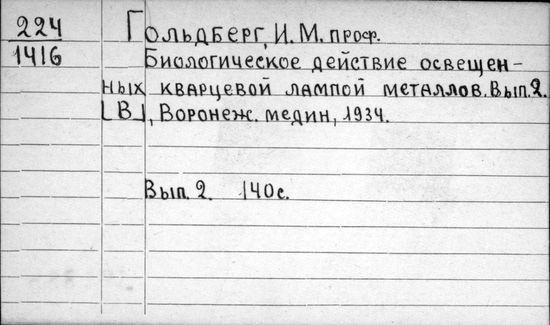 224
1416
Гольдберг, И. М. проф.
Биологическое действие освещен-
ных кварцевой лампой металлов. Вып. 2.
[В], Воронеж. медин, 1934.
Вып. 2. 140 с.